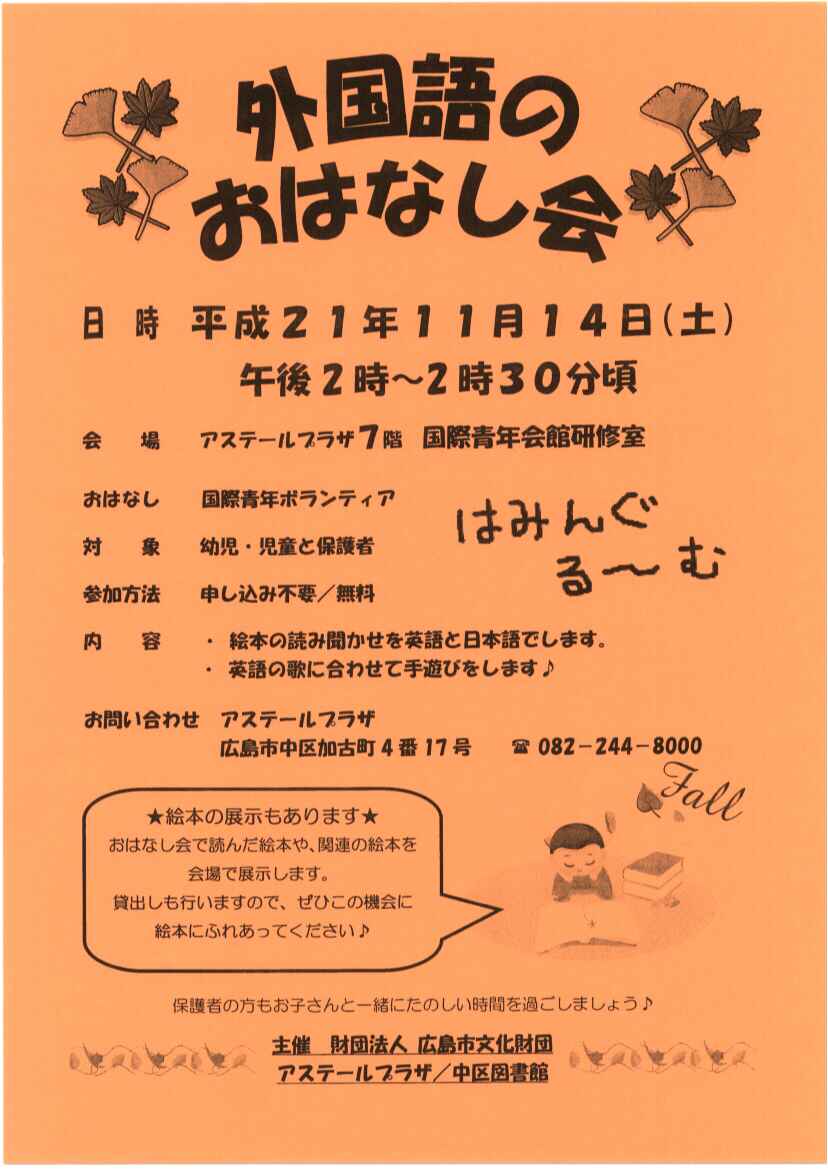 外国語の
おはなし会
日 時 平成21年11月14日(土)
午後2時～2時30分頃
会 場 アステールプラザ7階 国際青年会館研修室
おはなし 国際青年ボランティア
はみんぐ
る～む
対 象 幼児・児童と保護者
参加方法 申し込み不要／無料
内 容 ・ 絵本の読み聞かせを英語と日本語でします。
・ 英語の歌に合わせて手遊びをします♪
お問い合わせ アステールプラザ
広島市中区加古町4番17号 ☎ 082－244－8000
Fall
★絵本の展示もあります★
おはなし会で読んだ絵本や、関連の絵本を
会場で展示します。
貸出しも行いますので、ぜひこの機会に
絵本にふれあってください♪
保護者の方もお子さんと一緒にたのしい時間を過ごしましょう♪
主催 財団法人 広島市文化財団
アステールプラザ／中区図書館